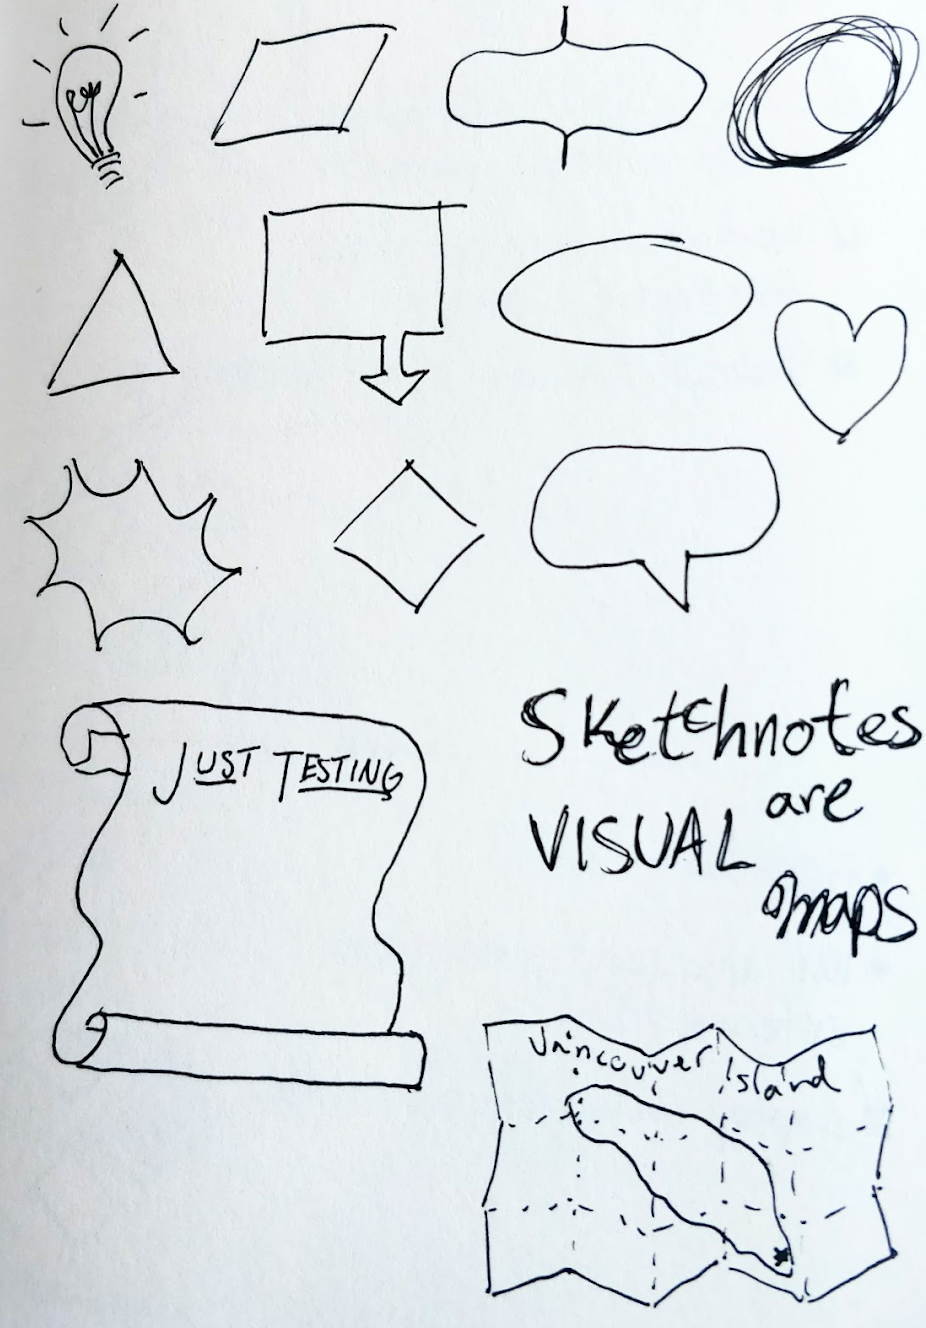 JUST TESTING
Sketchnotes
are
VISUAL
maps
Vancouver Island